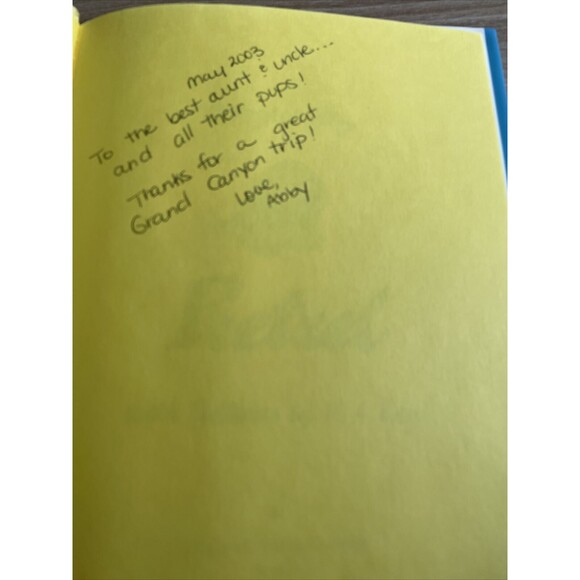 May 2003
To the best aunt & uncle...
and all their pups!
Thanks for a great
Grand Canyon trip!
Love,
Abby